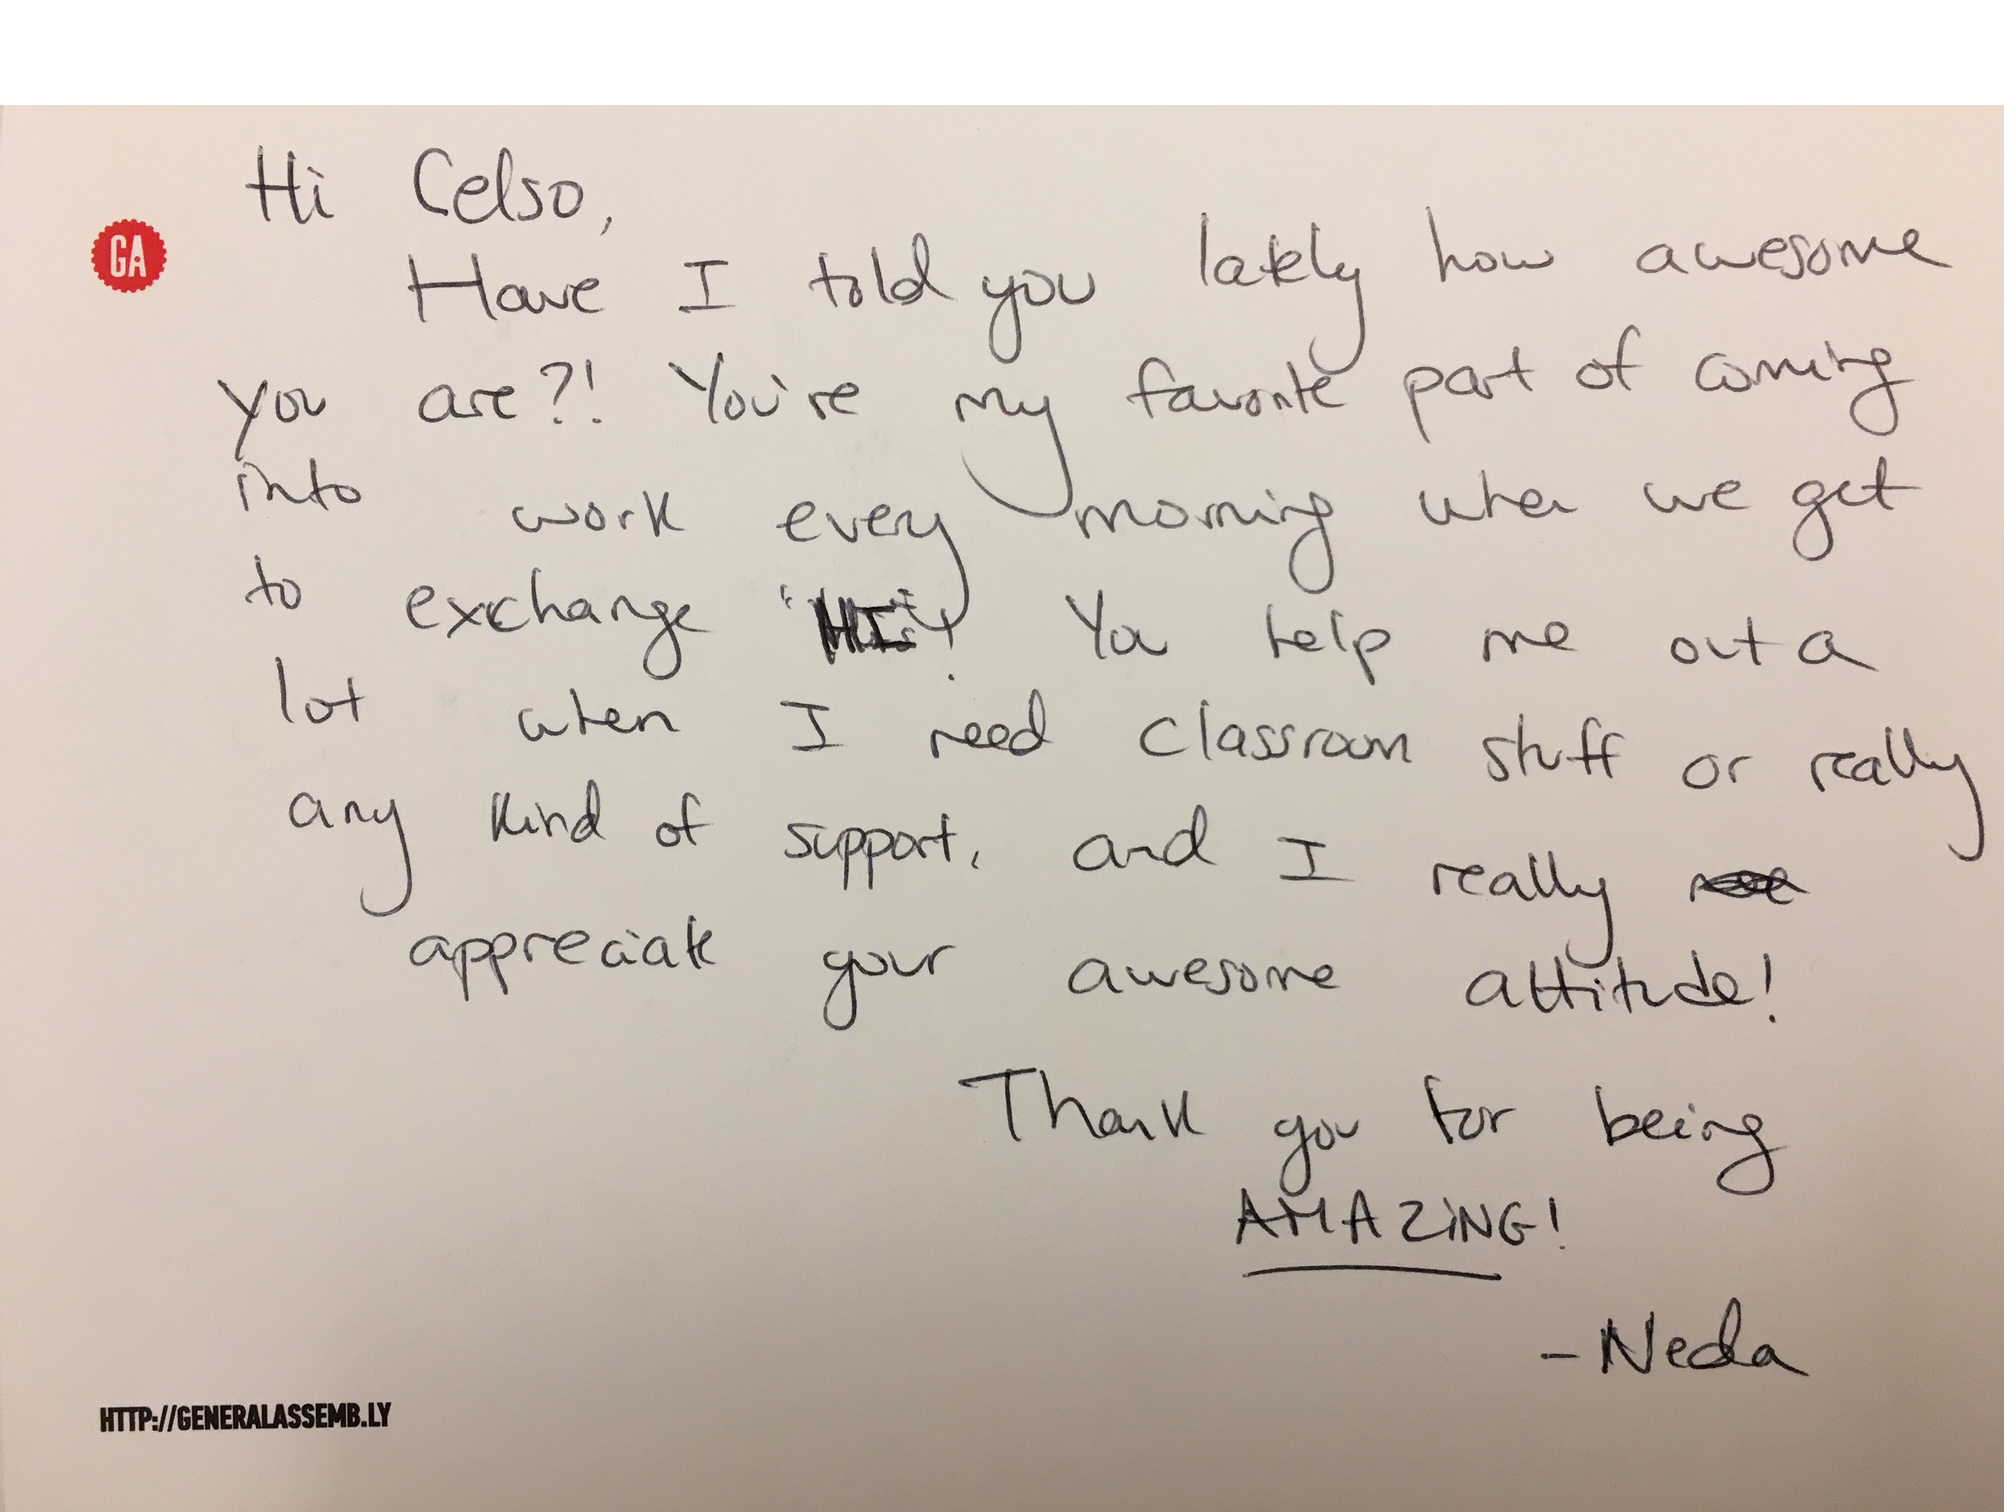 Hi Celso,
GA
Have I told you lately how awesome
you are?! You're my favorite part of coming
into work every morning when we get
to exchange "HI"! You help me out a
lot when I need classroom stuff or really
any kind of support, and I really
appreciate your awesome attitude!
Thank you for being
AMAZING!
- Neda
HTTP://GENERALASSEMB.LY